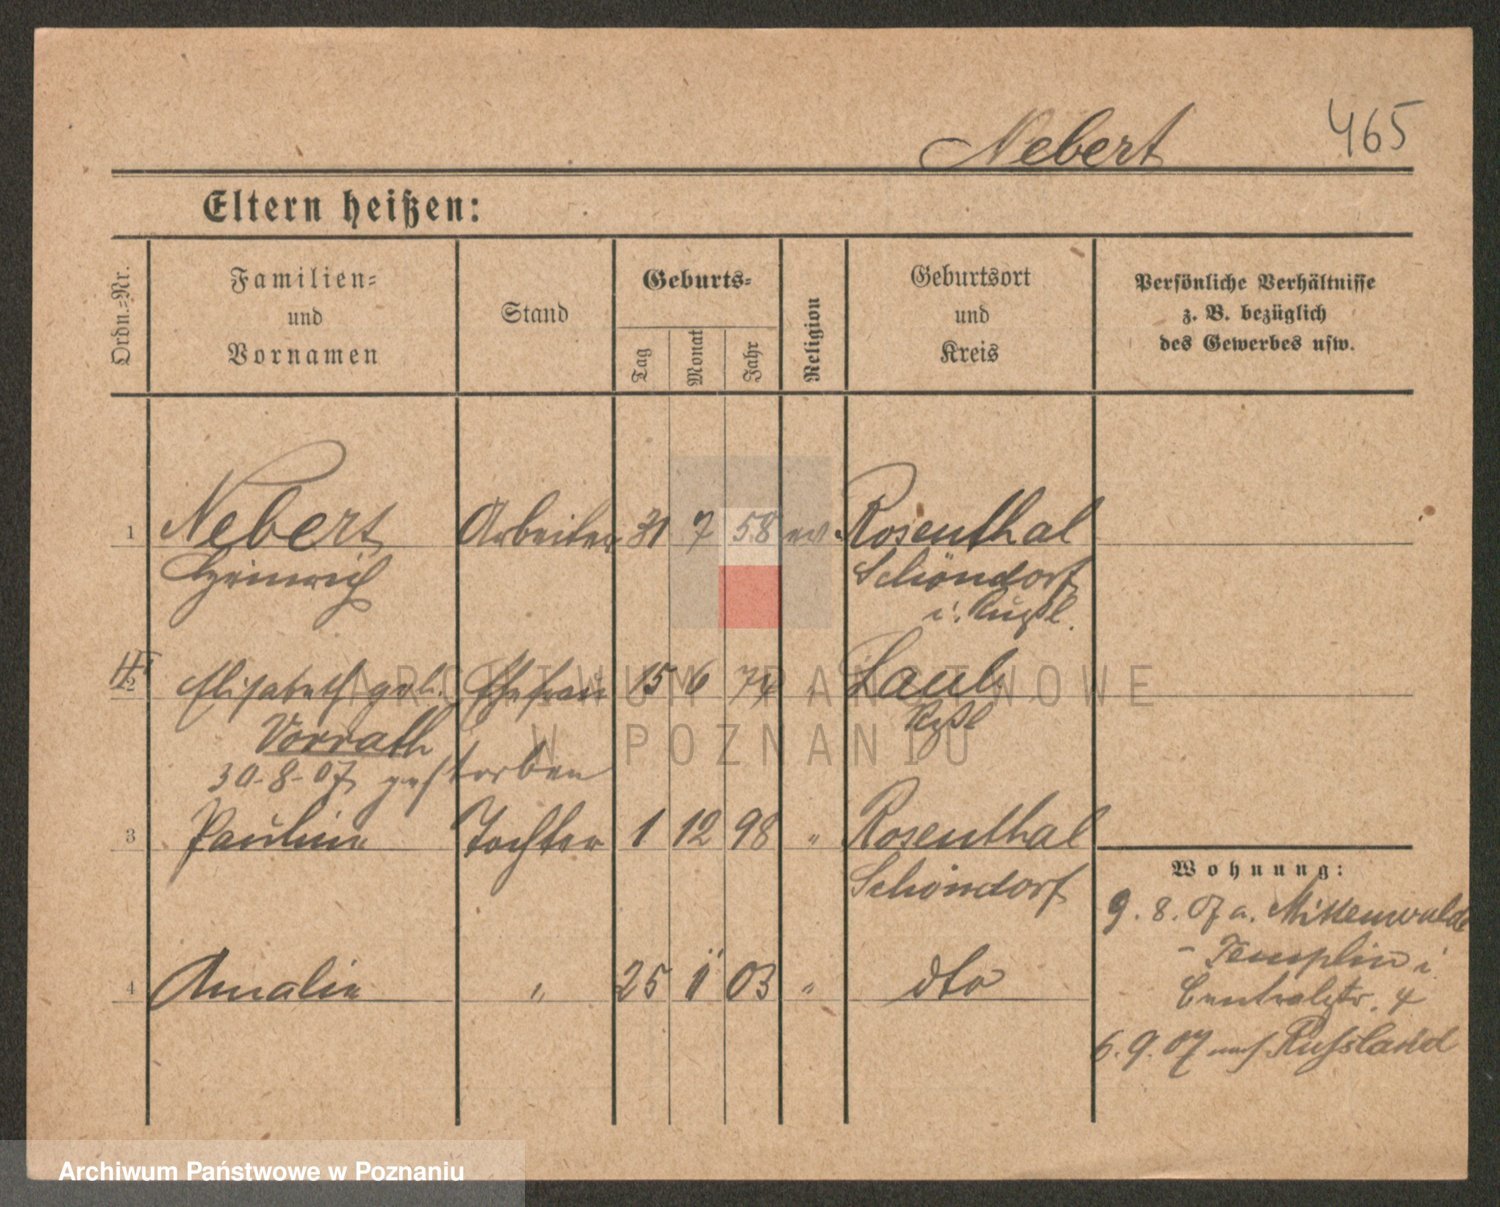 Nebert 465
Eltern heißen:
Ordn.-Nr.
Familien-
und
Vornamen
Stand
Geburts-
Tag
Monat
Jahr
Religion
Geburtsort
und
Kreis
Persönliche Verhältnisse
z. B. bezüglich
des Gewerbes usw.
1 Nebert Arbeiter 31 7 58 ev. Rosenthal
Heinrich Schöndorf
i. Rußl.
2 Elisabeth geb. Ehefrau 15 6 74 "
Vorrath Rßl
30-8-07 gestorben
3 Pauline Tochter 1 12 98 " Rosenthal
Schöndorf
4 Amalie " 25 03 " dto
Wohnung:
9. 8. 07 a. Mittenwalde
- Templin i.
Centralstr. 4
6. 9. 07 nach Russland
ARCHIWUM PAŃSTWOWE
W POZNANIU
Archiwum Państwowe w Poznaniu